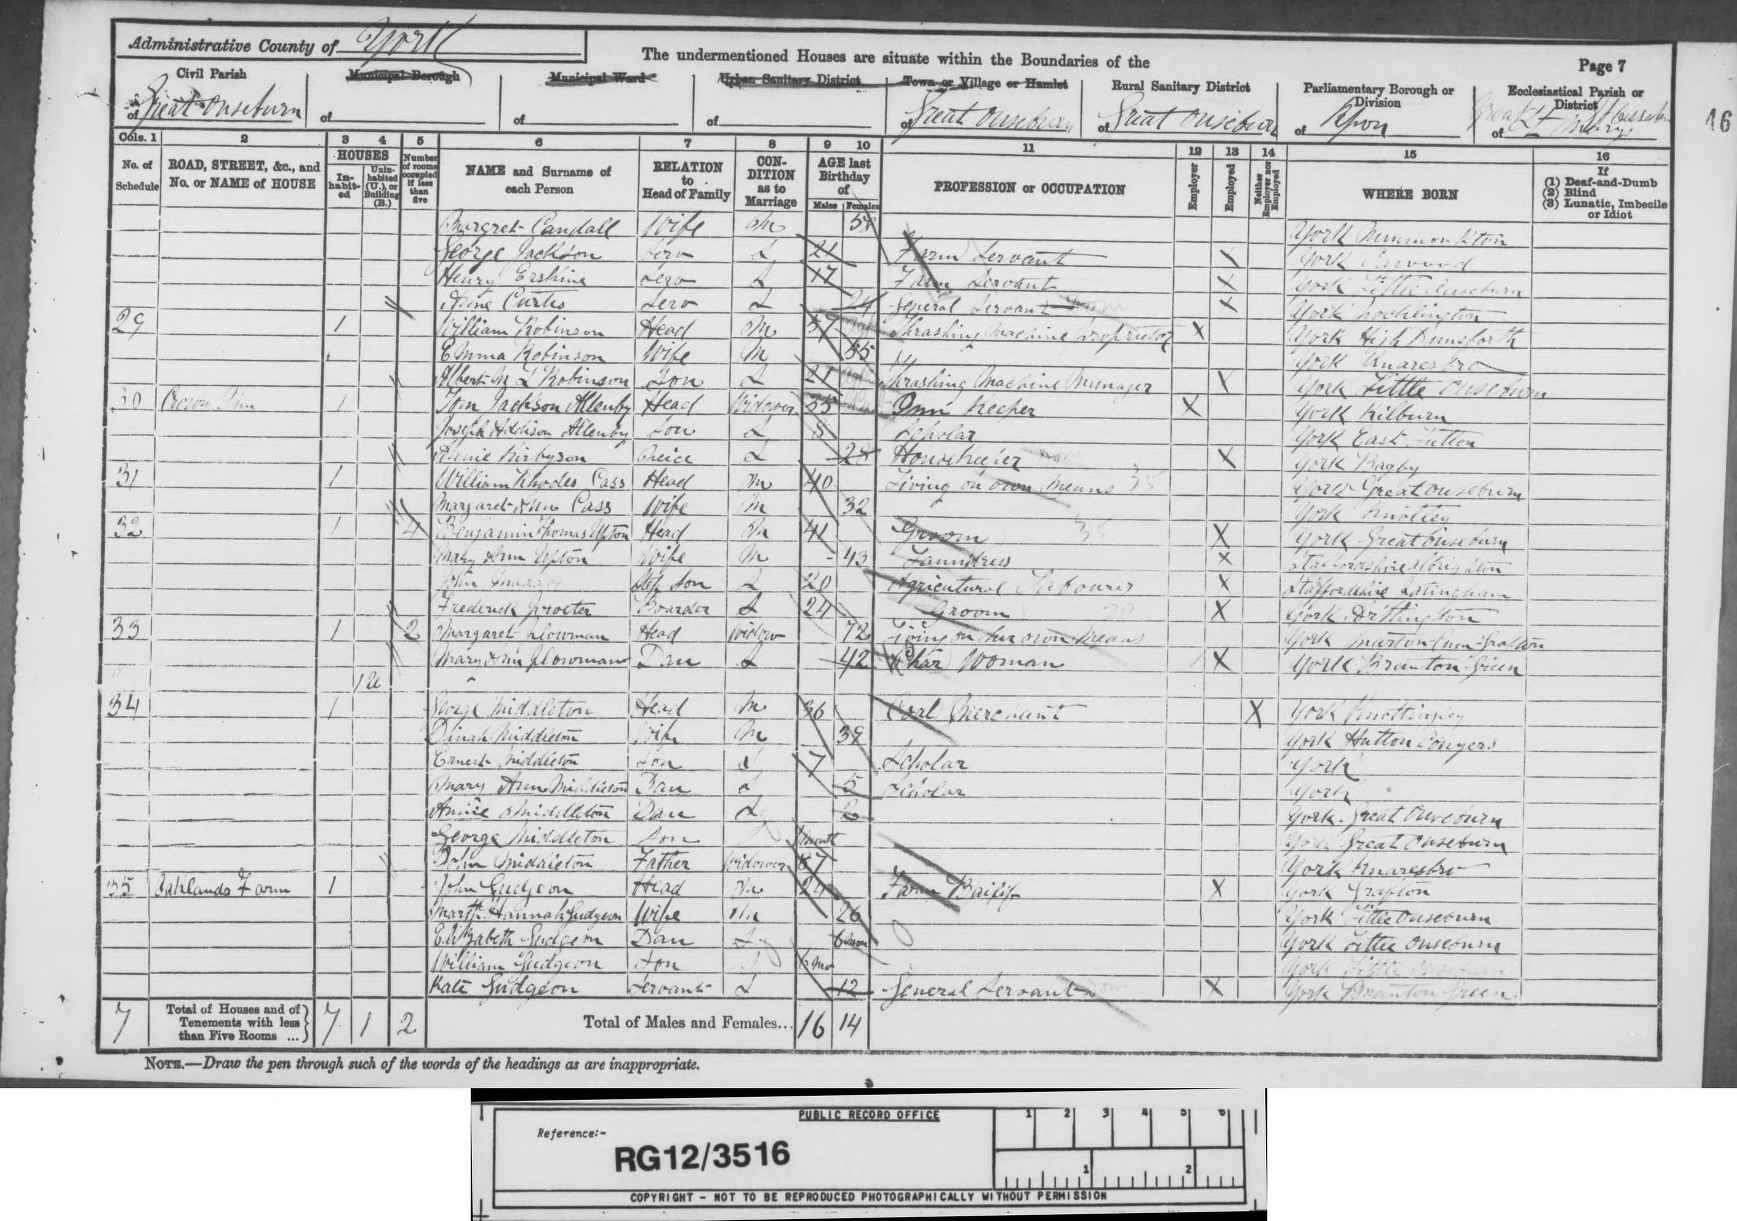 Administrative County of York
The undermentioned Houses are situate within the Boundaries of the
Page 7
Civil Parish of Great Ouseburn
Municipal Borough of
Municipal Ward of
Urban Sanitary District of
Town or Village or Hamlet of Great Ouseburn
Rural Sanitary District of Great Ouseburn
Parliamentary Borough or Division of Ripon
Ecclesiastical Parish or District of
16
Cols. 1 2 3 4 5 6 7 8 9 10 11 12 13 14 15 16
No. of Schedule
ROAD, STREET, &c., and No. or NAME of HOUSE
HOUSES
Inhabited
Uninhabited (U.), or Building (B.)
Number of rooms occupied if less than five
NAME and Surname of each Person
RELATION to Head of Family
CONDITION as to Marriage
AGE last Birthday of
Males Females
PROFESSION or OCCUPATION
Employer
Employed
Neither Employer nor Employed
WHERE BORN
If
(1) Deaf-and-Dumb
(2) Blind
(3) Lunatic, Imbecile or Idiot
Margret Candall Wife M York
George Jackson Serv S 21 Farm Servant X York
Henry Erskine Serv S 17 Farm Servant X York Little Ouseburn
Curtis Serv S 24 General Servant X York
29 1 William Robinson Head M 57 Thrashing Machine Proprietor X York High Dunsforth
Emma Robinson Wife M 55 York Knaresbro
Albert Robinson Son S 21 Thrashing Machine Manager X York Little Ouseburn
30 Crown Inn 1 Tom Jackson Allenby Head Widower 35 Inn Keeper X York Kilburn
Joseph Addison Allenby Son S 8 Scholar York East
Kirbyson Neice S 28 Housekeeper X York Bagby
31 1 William Rhodes Cass Head M 40 Living on own Means York Great Ouseburn
Margaret Ann Cass Wife M 32 York
32 1 4 Benjamin Thomas Upton Head M 41 Groom X York Great Ouseburn
Mary Ann Upton Wife M 43 Laundress X Staffordshire
John Step Son S 20 Agricultural Labourer X Staffordshire
Frederick Procter Boarder S 24 Groom X York
33 1 2 Margaret Plowman Head Widow 72 Living on her own Means York Marton cum Grafton
Mary Ann Plowman Dau S 42 Char Woman X York Branton Green
1 U
34 1 George Middleton Head M 36 Coal Merchant X York Knottingley
Dinah Middleton Wife M 39 York Hutton Conyers
Ernest Middleton Son S 7 Scholar York
Mary Ann Middleton Dau S 5 Scholar York
Annie Middleton Dau S 2 York Great Ouseburn
George Middleton Son 1 month York Great Ouseburn
John Middleton Father Widower 67 York Knaresbro
35 Oaklands Farm 1 John Gudgeon Head M 24 Farm Bailiff X York Grafton
Martha Hannah Gudgeon Wife M 26 York Little Ouseburn
Elizabeth Gudgeon Dau S York Little Ouseburn
William Gudgeon Son S 6 mo York Little Ouseburn
Kate Gudgeon Servant S 12 General Servant X York Branton Green
7 Total of Houses and of Tenements with less than Five Rooms ... 7 1 2 Total of Males and Females... 16 14
NOTE.—Draw the pen through such of the words of the headings as are inappropriate.
PUBLIC RECORD OFFICE
Reference:-
RG12/3516
1 2 3 4 5 6
1 2
COPYRIGHT - NOT TO BE REPRODUCED PHOTOGRAPHICALLY WITHOUT PERMISSION